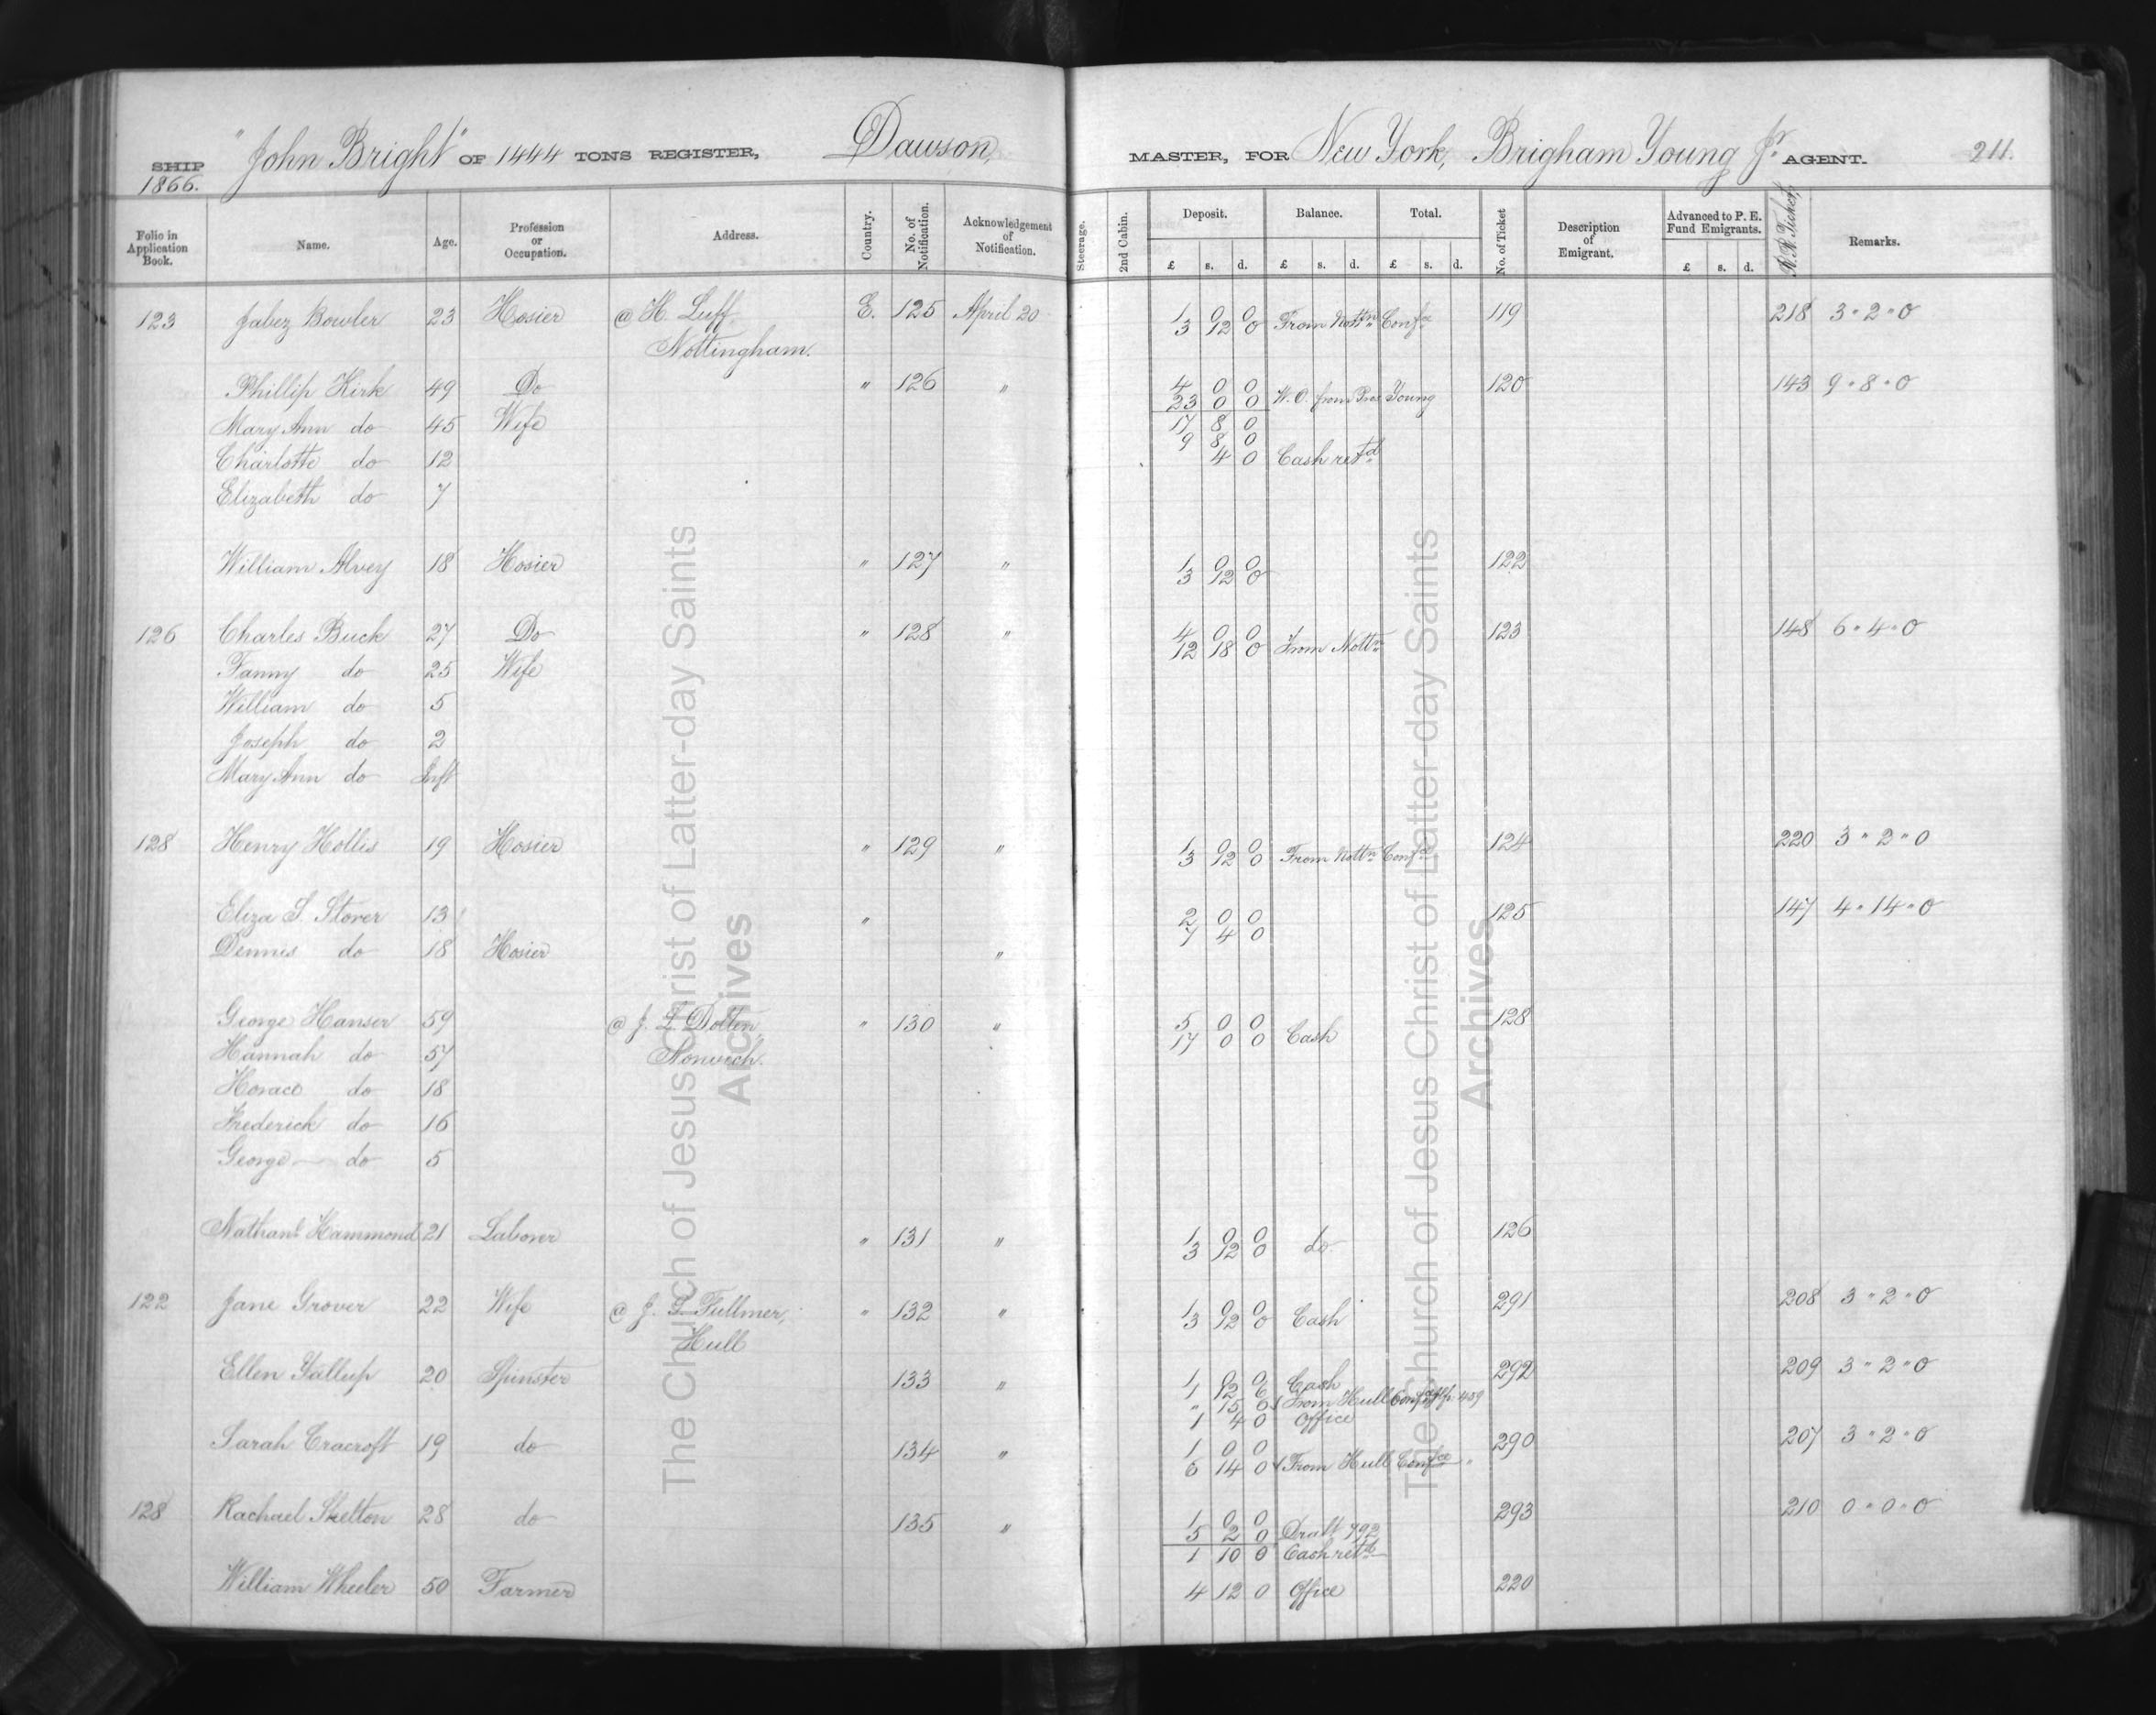 SHIP "John Bright" OF 1444 TONS REGISTER, Dawson, MASTER, FOR New York, Brigham Young Jr. AGENT. 211.
1866.
Folio in Application Book. Name. Age. Profession or Occupation. Address. Country. No. of Notification. Acknowledgement of Notification. Steerage. 2nd Cabin. Deposit. Balance. Total. No. of Ticket Description of Emigrant. Advanced to P. E. Fund Emigrants. R. R. Ticket, Remarks.
£ s. d. £ s. d. £ s. d. £ s. d.
123 Jabez Bowler 23 Hosier @ H. Luff E. 125 April 20 1 0 0 119 218 3 " 2 " 0
Nottingham. 3 12 0 From Nottn Confce
Phillip Kirk 49 Do " 126 " 4 0 0 120 143 9 " 8 " 0
23 0 0 W. O. from Pres Young
Mary Ann do 45 Wife 17 8 0
9 8 0
Charlotte do 12 4 0 Cash retd
Elizabeth do 7
William Alvey 18 Hosier " 127 " 1 0 0 122
3 12 0
126 Charles Buck 27 Do " 128 " 4 0 0 123 148 6 " 4 " 0
12 18 0 From Nottn
Fanny do 25 Wife
William do 5
Joseph do 2
Mary Ann do Inft
128 Henry Hollis 19 Hosier " 129 " 1 0 0 124 220 3 " 2 " 0
3 12 0 From Nottn Confce
Eliza S. Storer 13 " 2 0 0 125 147 4 " 14 " 0
7 4 0
Dennis do 18 Hosier "
George Hanser 59 @ J. L. Dolten " 130 " 5 0 0 128
17 0 0 Cash
Hannah do 57 Norwich.
Horace do 18
Frederick do 16
George do 5
Nathanl Hammond 21 Laborer " 131 " 1 0 0 126
3 12 0 do
122 Jane Grover 22 Wife @ J. S. Fullmer, " 132 " 1 0 0 291 208 3 " 2 " 0
Hull 3 12 0 Cash
Ellen Gallup 20 Spinster 133 " 1 0 0 Cash 292 209 3 " 2 " 0
1 12 6
" 15 6 From Hull Confce
1 4 0 Office
Sarah Cracroft 19 do 134 " 1 0 0 290 207 3 " 2 " 0
6 14 0 From Hull Confce
128 Rachael Skelton 28 do 135 " 1 0 0 293 210 0 " 0 " 0
5 2 0 Draft 792
1 10 0 Cash retd
William Wheeler 50 Farmer 4 12 0 Office 220
The Church of Jesus Christ of Latter-day Saints
Archives
The Church of Jesus Christ of Latter-day Saints
Archives